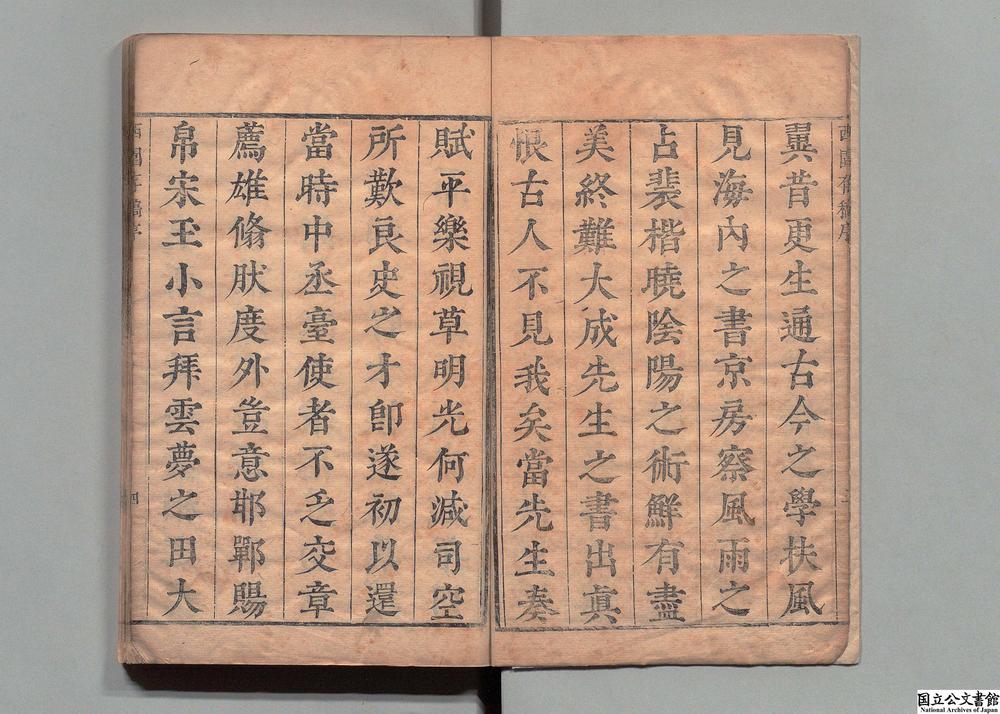 翼昔更生通古今之學扶風
見海內之書京房察風雨之
占裴楷曉陰陽之術鮮有盡
美終難大成先生之書出眞
恨古人不見我矣當先生奏
賦平樂視草明光何減司空
所歎良史之才卽遂初以還
當時中丞臺使者不乏交章
薦雄脩狀度外豈意邯鄲賜
帛宋玉小言拜雲夢之田大
国立公文書館
National Archives of Japan